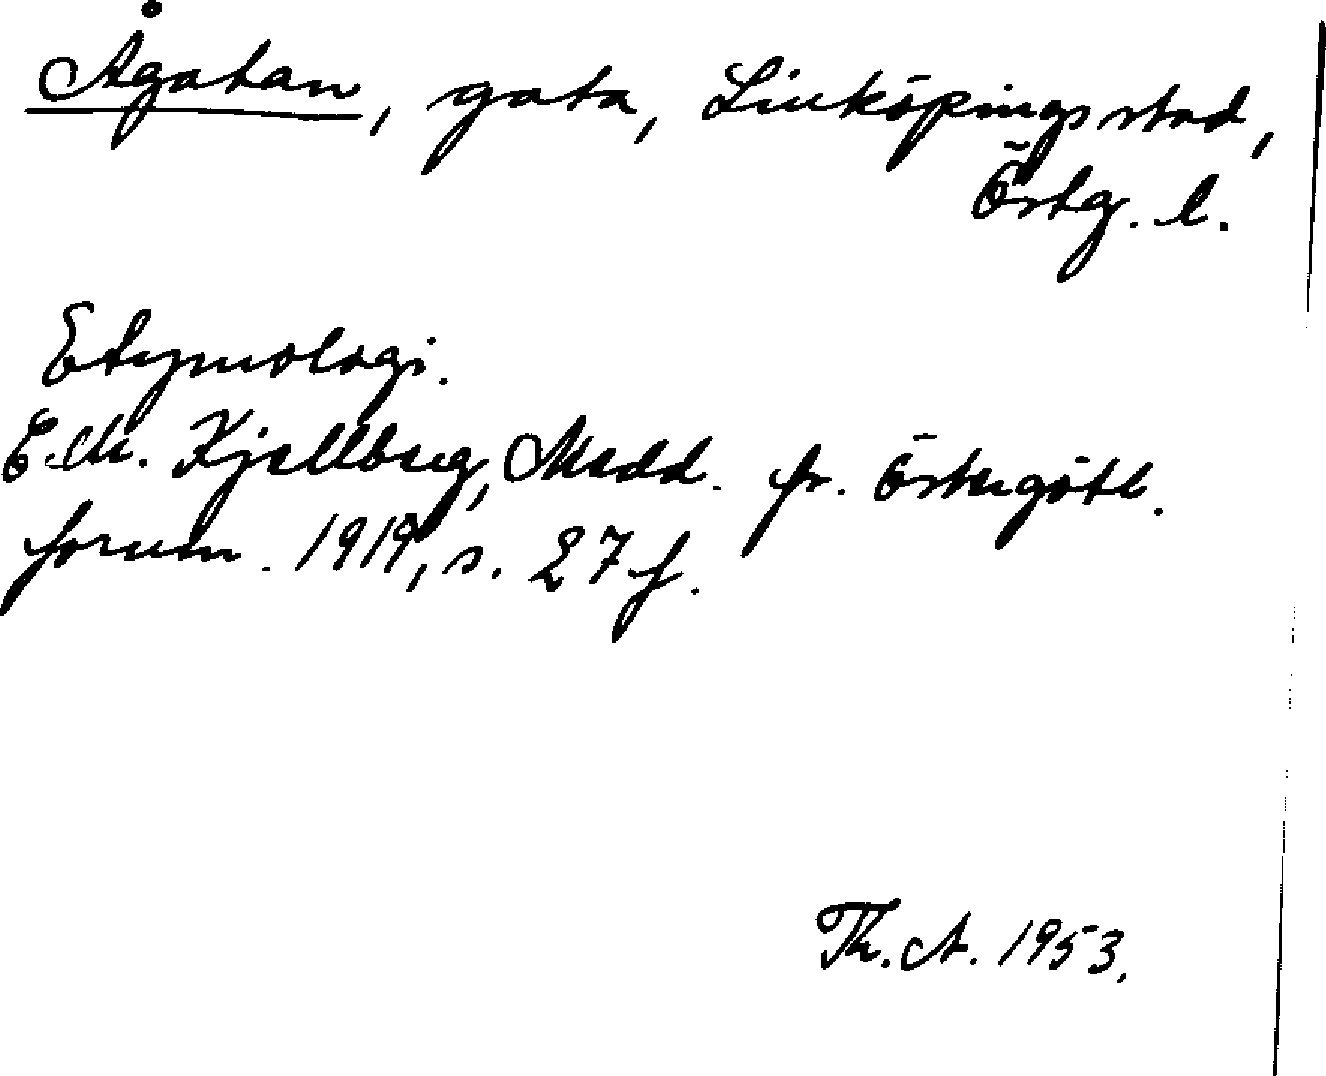 Ågatan, gata, Linköpings stad,
Östg. l.
Etymologi.
E. M. Kjellberg, Medd. fr. Östergötl.
fornm. 1919, s. 27 f.
Th. A. 1953.